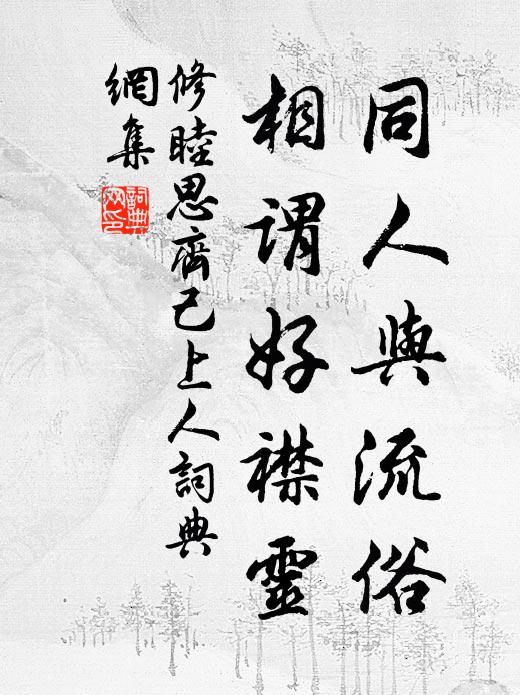 同人與流俗
相謂好襟靈
修睦思齊己上人詞典
網集
詞典
网印